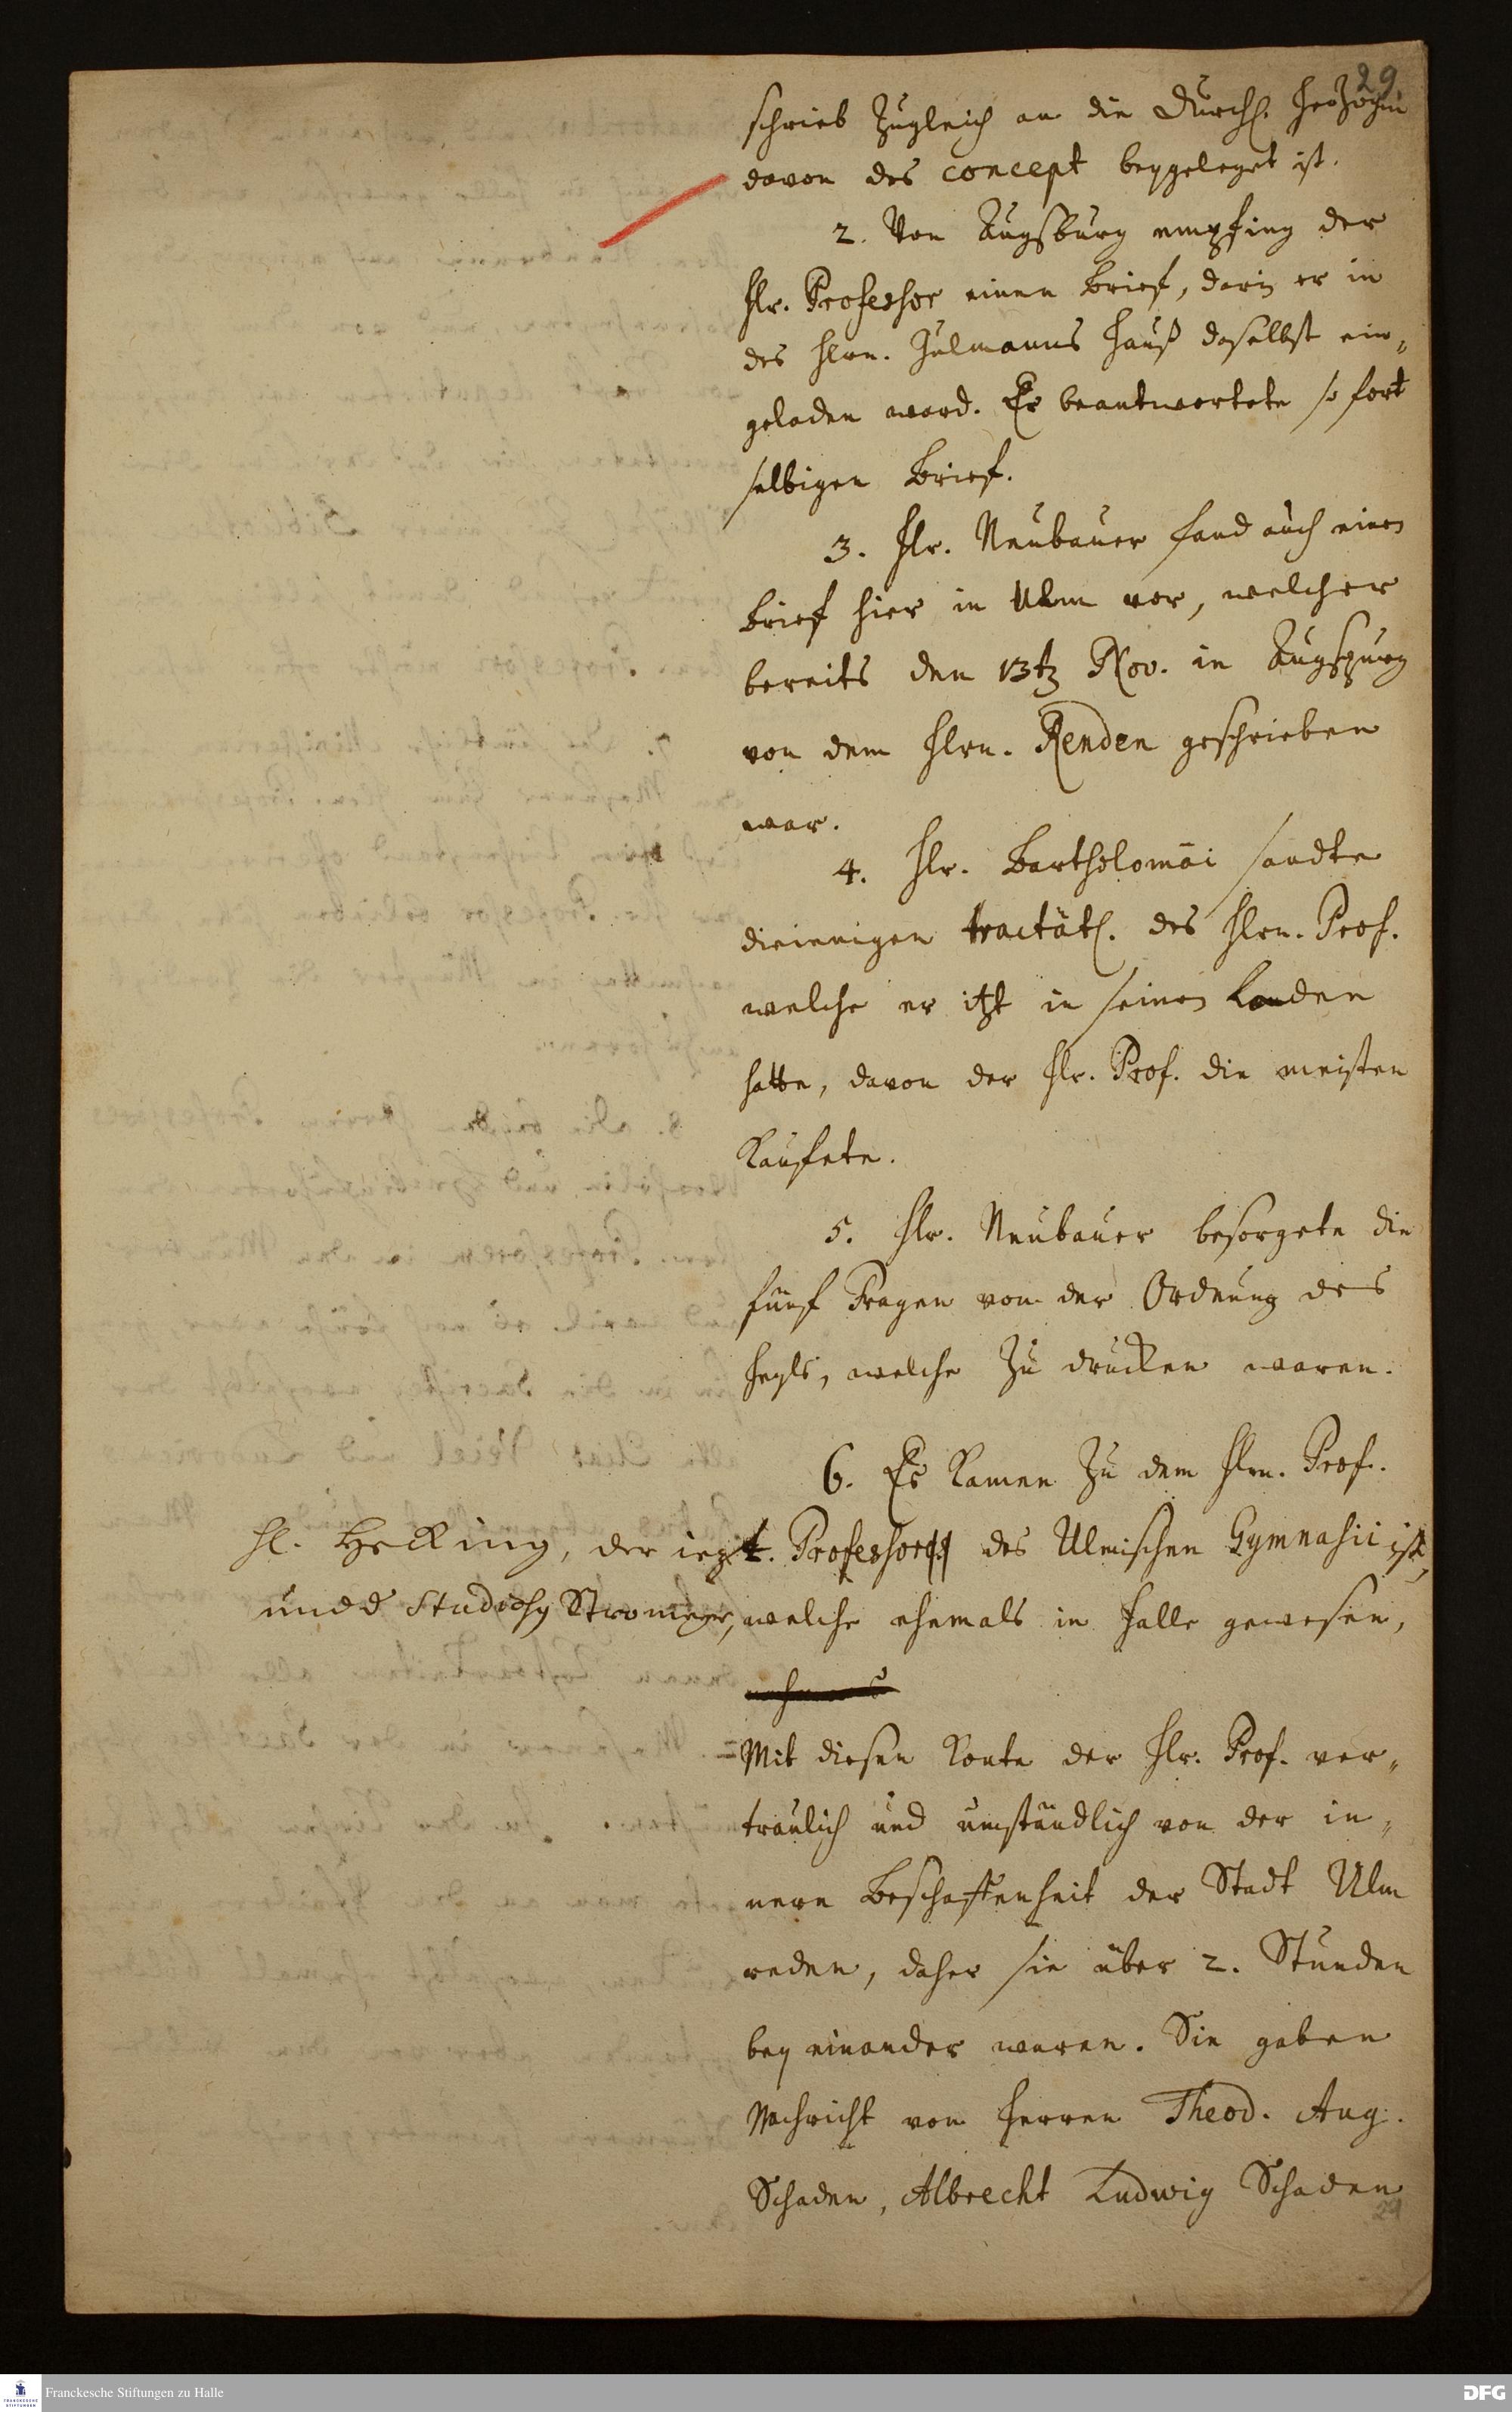 29
schrieb zugleich an die Durchl. Herzogin
davon das concept beygeleget ist.
2. Von Augsburg empfing der
Hr. Professor einen Brief, darin er in
des Hrn. Hülmanns Hauß daselbst ein-
geladen ward. Er beantwortete so fort
selbigen Brief.
3. Hr. Neubauer fand auch einen
Brief hier in Ulm vor, welcher
bereits den 13ten Nov. in Augspurg
von dem Hrn. Renden geschrieben
war.
4. Hr. Bartholomäi sandte
dieienigen tractätl. des Hrn. Prof.
welche er itzt in seinen Laden
hatte, davon der Hr. Prof. die meisten
kaufete.
5. Hr. Neubauer besorgete die
fünf Fragen von der Ordnung des
Heyls, welche zu drucken waren.
6. Es kamen zu dem Hrn. Prof.
H. Hecking, der iezt. Professor des Ulmischen Gymnasii ist,
und Studiosus Stromeyer, welche ehemals in Halle gewesen,
Mit diesen konte der Hr. Prof. ver-
traulich und umständlich von der in-
nern Beschaffenheit der Stadt Ulm
reden, daher sie über 2. Stunden
bey einander waren. Sie gaben
Nachricht von Herren Theod. Aug.
Schaden, Albrecht Ludwig Schaden
29
Franckesche Stiftungen zu Halle
DFG